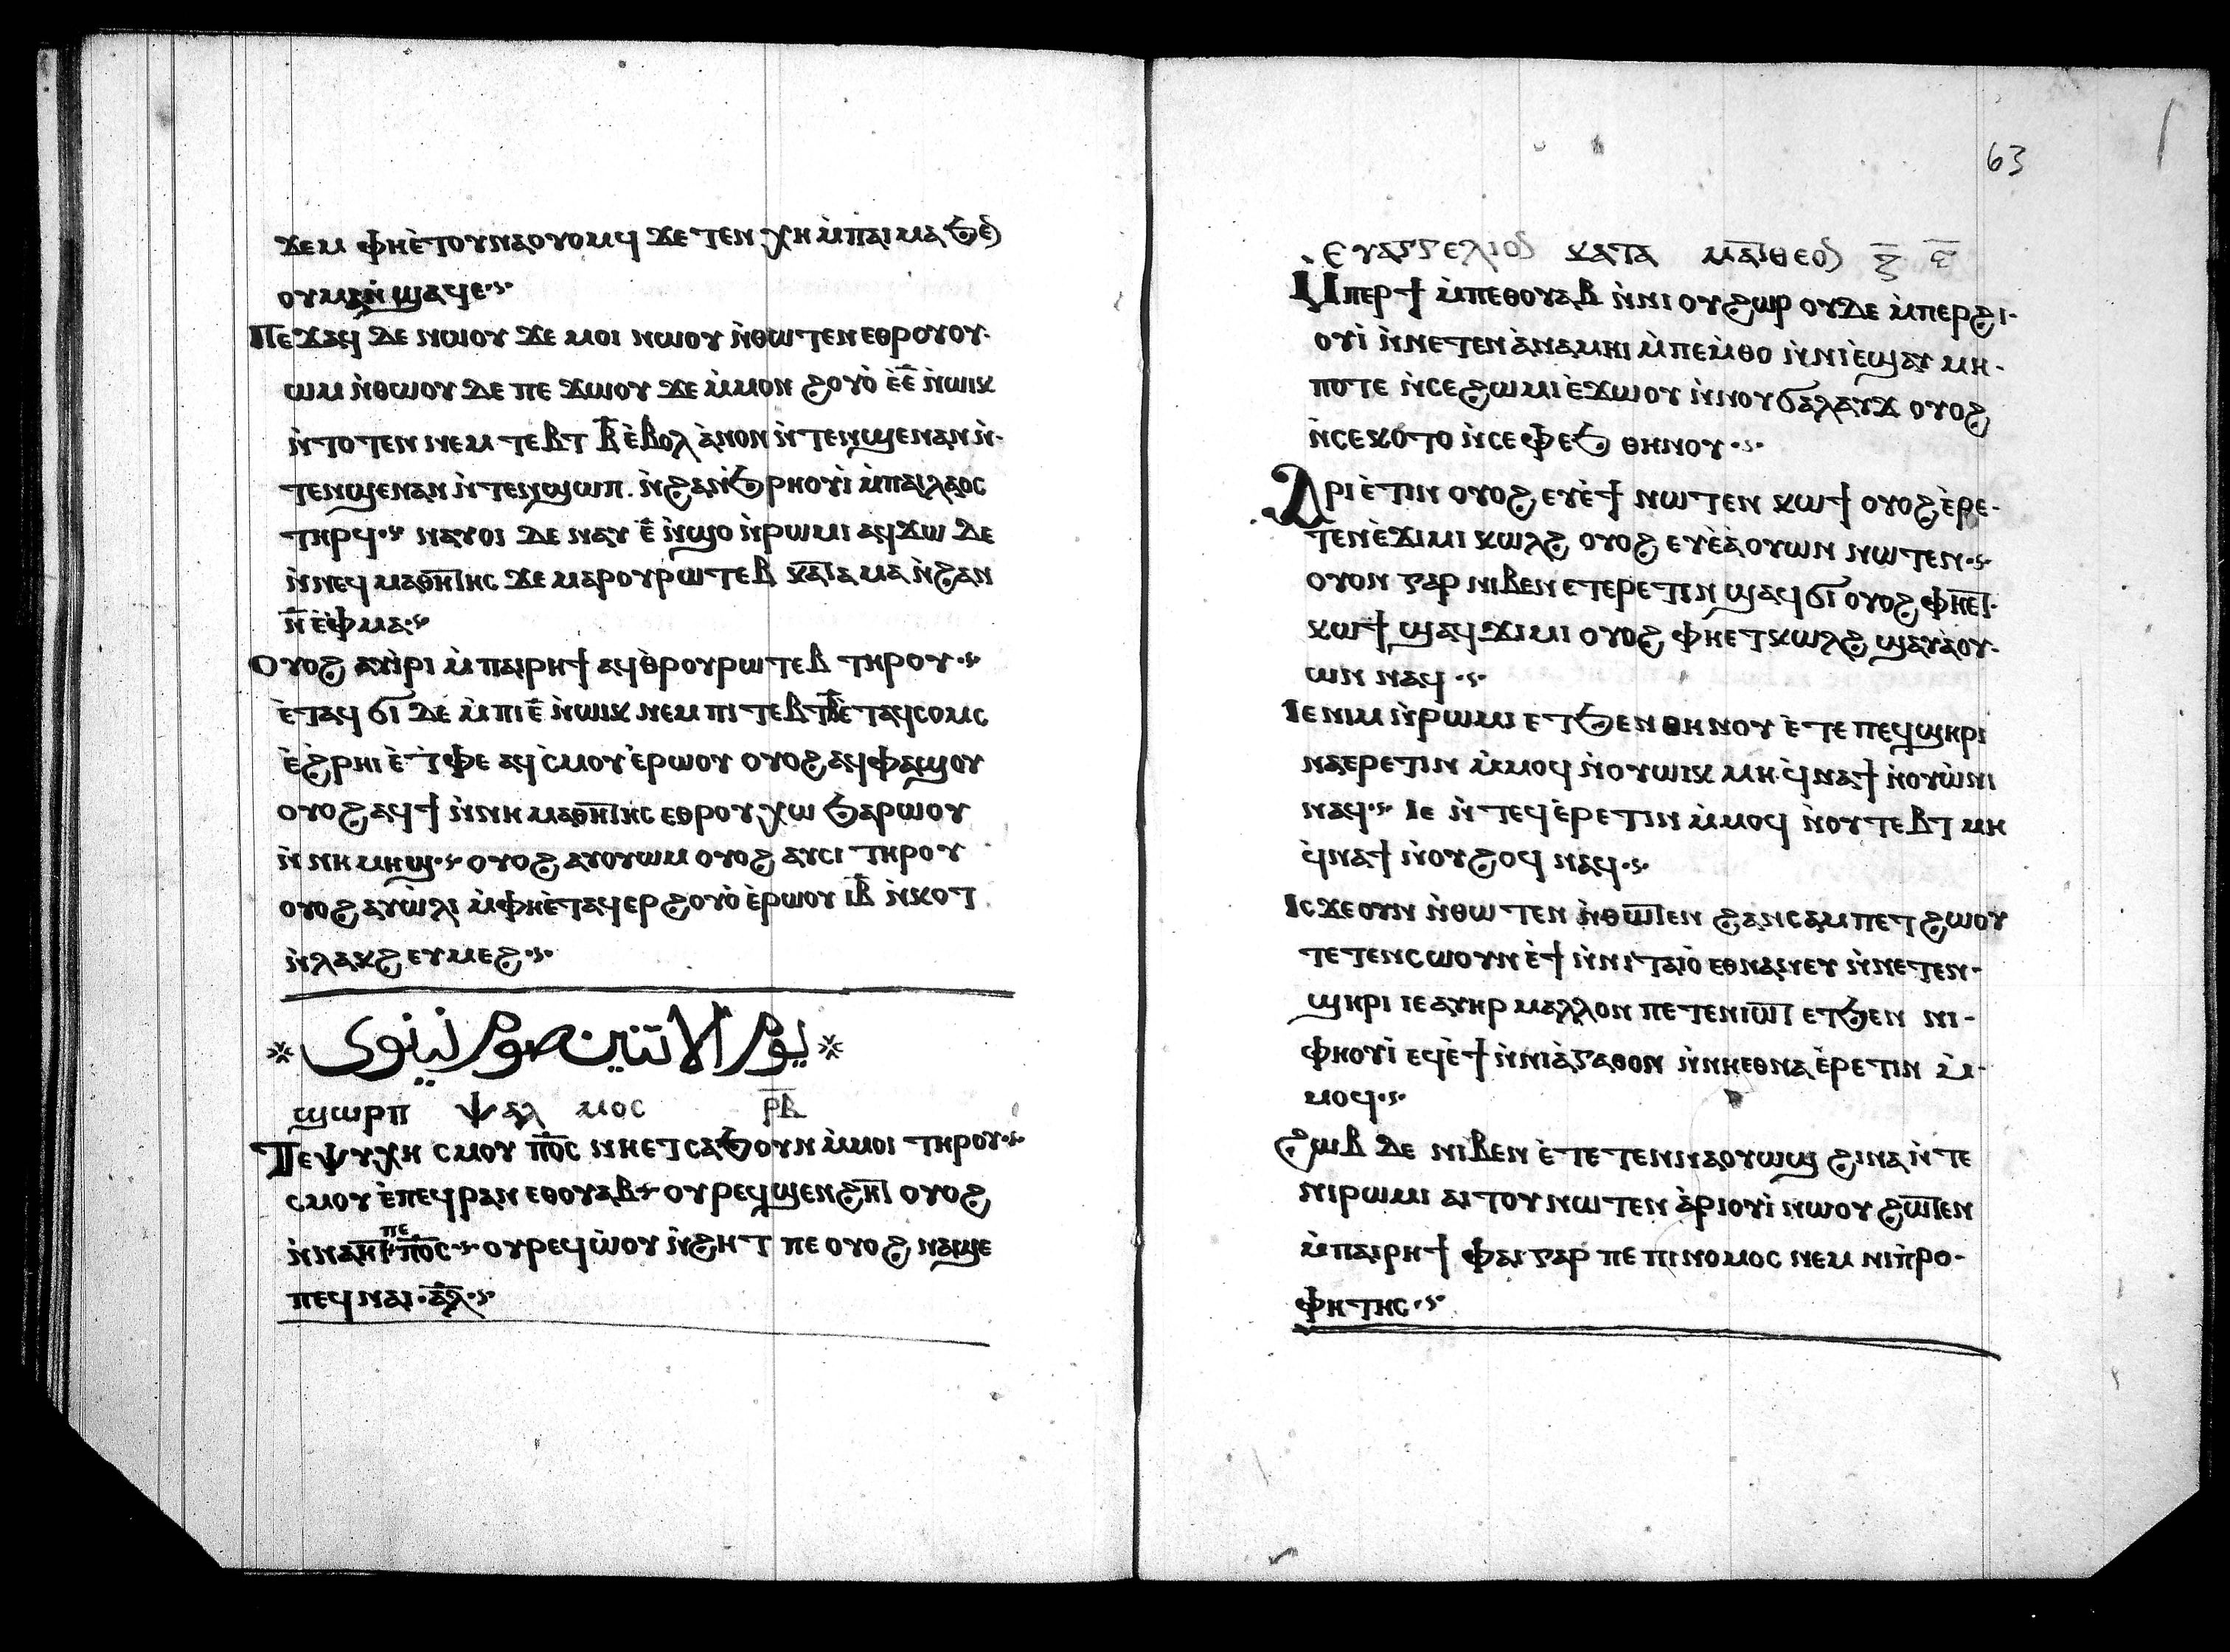 ϫⲉⲙ ⲫⲏⲉ̀ⲧⲟⲩⲛⲁⲟⲩⲟⲙϥ ϫⲉ ⲧⲉⲛ ⲭⲏ ⲙ̀ⲡⲁⲓ ⲙⲁ ϧⲉⲛ
ⲟⲩⲙⲁⲛ̀ϣⲁϥⲉ
Ⲡⲉϫⲁϥ ⲇⲉ ⲛⲱⲟⲩ ϫⲉ ⲙⲟⲓ ⲛⲱⲟⲩ ⲛ̀ⲑⲱⲧⲉⲛ ⲉⲑⲣⲟⲩⲟⲩ·
ⲱⲙ ⲛ̀ⲑⲱⲟⲩ ⲇⲉ ⲡⲉ ϫⲱⲟⲩ ϫⲉ ⲙ̀ⲙⲟⲛ ϩⲟⲩⲟ̀ ⲉ̀ⲉ̅ ⲛ̀ⲱⲓⲕ
ⲛ̀ⲧⲟⲧⲉⲛ ⲛⲉⲙ ⲧⲉⲃⲧ ⲃ̅ ⲉ̀ⲃⲟⲗ ⲁ̀ⲛⲟⲛ ⲛ̀ⲧⲉⲛϣⲉⲛⲁⲛ ⲛ̀·
ⲧⲉⲛϣⲉⲛⲁⲛ ⲛ̀ⲧⲉⲛϣⲱⲡ. ⲛ̀ϩⲁⲛϧ̀ⲣⲏⲟⲩⲓ̀ ⲙ̀ⲡⲁⲓⲗⲁⲟⲥ
ⲧⲏⲣϥ ⲛⲁⲩⲟⲓ ⲇⲉ ⲛⲁⲩ ⲉ̅ ⲛ̀ϣⲟ ⲛ̀ⲣⲱⲙⲓ ⲁϥϫⲱ ⲇⲉ
ⲛ̀ⲛⲉϥ ⲙⲁⲑⲏⲧⲏⲥ ϫⲉ ⲙⲁⲣⲟⲩⲣⲱⲧⲉⲃ ⲕⲁⲧⲁ ⲙⲁ ⲛ̀ϩⲁⲛ
ⲛ̅ ⲉ̀ⲫⲙⲁ
Ⲟⲩⲟϩ ⲁⲩⲓ̀ⲣⲓ ⲙ̀ⲡⲁⲓⲣⲏϯ ⲁϥⲑ̀ⲣⲟⲩⲣⲱⲧⲉⲃ ⲧⲏⲣⲟⲩ
ⲉ̀ⲧⲁϥ ϭⲓ ⲇⲉ ⲙ̀ⲡⲓⲉ̅ ⲛ̀ⲱⲓⲕ ⲛⲉⲙ ⲡⲓ ⲧⲉⲃⲧ ⲃ̅ ⲉ̀ⲧⲁϥⲥⲟⲙⲥ
ⲉ̀ϩ̀ⲣⲏⲓ ⲉ̀ⲧ̀ⲫⲉ ⲁϥ ⲥ̀ⲙⲟⲩ ⲉ̀ⲣⲱⲟⲩ ⲟⲩⲟϩ ⲁϥⲫⲁϣⲟⲩ
ⲟⲩⲟϩ ⲁϥϯ ⲛ̀ⲛⲏ ⲙⲁⲑⲏⲧⲏⲥ ⲉⲑⲣⲟⲩ ⲭⲱ ϧⲁⲣⲱⲟⲩ
ⲛ̀ⲛⲏ ⲙⲏϣ ⲟⲩⲟϩ ⲁⲩⲟⲩⲱⲙ ⲟⲩⲟϩ ⲁⲩⲥⲓ ⲧⲏⲣⲟⲩ
ⲟⲩⲟϩ ⲁⲩⲱ̀ⲗⲓ ⲙ̀ⲫⲏⲉ̀ⲧⲁϥⲉⲣ ϩⲟⲩⲟ̀ ⲉ̀ⲣⲱⲟⲩ ⲓⲃ̅ ⲛ̀ⲕⲟⲧ
ⲛ̀ⲗⲁⲕϩ ⲉⲩⲙⲉϩ
* يوم الاتنين صوم نينوى *
ϣⲱⲣⲡ ⲯⲁⲗ ⲙⲟⲥ ⲣⲃ̅
Ⲡⲉⲯⲩⲭⲏ ⲥⲙⲟⲩ ⲡⲟ̅ⲥ̅ ⲛⲏⲉⲧⲥⲁϧⲟⲩⲛ ⲙ̀ⲙⲟⲓ ⲧⲏⲣⲟⲩ
ⲥⲙⲟⲩ ⲉ̀ⲡⲉϥⲣⲁⲛ ⲉⲑⲟⲩⲁⲃ ⲟⲩⲣⲉϥϣⲉⲛϩⲏⲧ ⲟⲩⲟϩ
ⲛ̀ⲛⲁⲏⲧ ⲡⲉ ⲡⲟ̅ⲥ̅ ⲟⲩⲣⲉϥⲱ̀ⲟⲩ ⲛ̀ϩⲏⲧ ⲡⲉ ⲟⲩⲟϩ ⲛⲁϣⲉ
ⲡⲉϥ ⲛⲁⲓ · ⲁ̅ⲗ̅
63
Ⲉⲩⲁⲅⲅⲉⲗⲓⲟⲛ ⲕⲁⲧⲁ ⲙⲁⲧⲑⲉⲟⲛ ⲍ̅ ⲋ̅
Ⲙ̀ⲡⲉⲣϯ ⲙ̀ⲡⲉⲑⲟⲩⲁⲃ ⲛ̀ⲛⲓ ⲟⲩϩⲱⲣ ⲟⲩⲇⲉ ⲙ̀ⲡⲉⲣϩⲓ·
ⲟⲩⲓ̀ ⲛ̀ⲛⲉⲧⲉⲛⲁ̀ⲛⲁⲙⲏⲓ ⲙ̀ⲡⲉⲙ̀ⲑⲟ ⲛ̀ⲛⲓⲉ̀ϣⲁⲩ ⲙⲏ·
ⲡⲟⲧⲉ ⲛ̀ⲥⲉϩⲱⲙⲓ ⲉ̀ϫⲱⲟⲩ ⲛ̀ⲛⲟⲩϭⲁⲗⲁⲩϫ ⲟⲩⲟϩ
ⲛ̀ⲥⲉⲕⲟⲧⲟ ⲛ̀ⲥⲉⲫⲉϧ ⲑⲏⲛⲟⲩ
Ⲁⲣⲓⲉ̀ⲧⲓⲛ ⲟⲩⲟϩ ⲉⲩⲉ̀ϯ ⲛⲱⲧⲉⲛ ⲕⲱϯ ⲟⲩⲟϩ ⲉ̀ⲣⲉ·
ⲧⲉⲛⲉ̀ϫⲓⲙⲓ ⲕⲱⲗϩ ⲟⲩⲟϩ ⲉⲩⲉ̀ⲁ̀ⲟⲩⲱⲛ ⲛⲱⲧⲉⲛ
ⲟⲩⲟⲛ ⲅⲁⲣ ⲛⲓⲃⲉⲛ ⲉⲧⲉⲣⲉⲧⲓⲛ ϣⲁϥϭⲓ ⲟⲩⲟϩ ⲫⲏⲉⲧ·
ⲕⲱϯ ϣⲁϥϫⲓⲙⲓ ⲟⲩⲟϩ ⲫⲏⲉⲧⲕⲱⲗϩ ϣⲁⲩⲁ̀ⲟⲩ·
ⲱⲛ ⲛⲁϥ
Ⲓⲉ ⲛⲓⲙ ⲛ̀ⲣⲱⲙⲓ ⲉⲧϧⲉⲛ ⲑⲏⲛⲟⲩ ⲉ̀ⲧⲉ ⲡⲉϥϣⲏⲣⲓ
ⲛⲁⲉⲣⲉⲧⲓⲛ ⲙ̀ⲙⲟϥ ⲛ̀ⲟⲩⲱⲓⲕ ⲙⲏ ϥ̀ⲛⲁϯ ⲛ̀ⲟⲩⲱ̀ⲛⲓ
ⲛⲁϥ Ⲓⲉ ⲛ̀ⲧⲉϥⲉ̀ⲣⲉⲧⲓⲛ ⲙ̀ⲙⲟϥ ⲛ̀ⲟⲩⲧⲉⲃⲧ ⲙⲏ
ϥ̀ⲛⲁϯ ⲛ̀ⲟⲩϩⲟϥ ⲛⲁϥ
Ⲓⲥϫⲉ ⲟⲩⲛ ⲛ̀ⲑⲱⲧⲉⲛ ⲛ̀ⲑⲱⲧⲉⲛ ϩⲁⲛⲥⲁⲙⲡⲉⲧϩⲱⲟⲩ
ⲧⲉⲧⲉⲛⲥⲱⲟⲩⲛ ⲉ̀ϯ ⲛ̀ⲛⲓⲧⲁⲓⲟ̀ ⲉⲑⲛⲁⲛⲉⲩ ⲛ̀ⲛⲉⲧⲉⲛ·
ϣⲏⲣⲓ ⲓⲉ ⲁⲩⲏⲣ ⲙⲁⲗⲗⲟⲛ ⲡⲉⲧⲉⲛⲓⲱⲧ ⲉⲧϧⲉⲛ ⲛⲓ·
ⲫⲏⲟⲩⲓ̀ ⲉϥⲉ̀ϯ ⲛ̀ⲛⲓⲁ̀ⲅⲁⲑⲟⲛ ⲛ̀ⲛⲏⲉⲑⲛⲁⲉ̀ⲣⲉⲧⲓⲛ ⲙ̀·
ⲙⲟϥ
Ϩⲱⲃ ⲇⲉ ⲛⲓⲃⲉⲛ ⲉ̀ⲧⲉⲧⲉⲛⲛⲁⲟⲩⲱϣ ϩⲓⲛⲁ ⲛ̀ⲧⲉ
ⲛⲓⲣⲱⲙⲓ ⲁⲓⲧⲟⲩ ⲛⲱⲧⲉⲛ ⲁ̀ⲣⲓⲟⲩⲓ̀ ⲛⲱⲟⲩ ϩⲱⲧⲉⲛ
ⲙ̀ⲡⲁⲓⲣⲏϯ ⲫⲁⲓ ⲅⲁⲣ ⲡⲉ ⲡⲓⲛⲟⲙⲟⲥ ⲛⲉⲙ ⲛⲓⲡ̀ⲣⲟ·
ⲫⲏⲧⲏⲥ